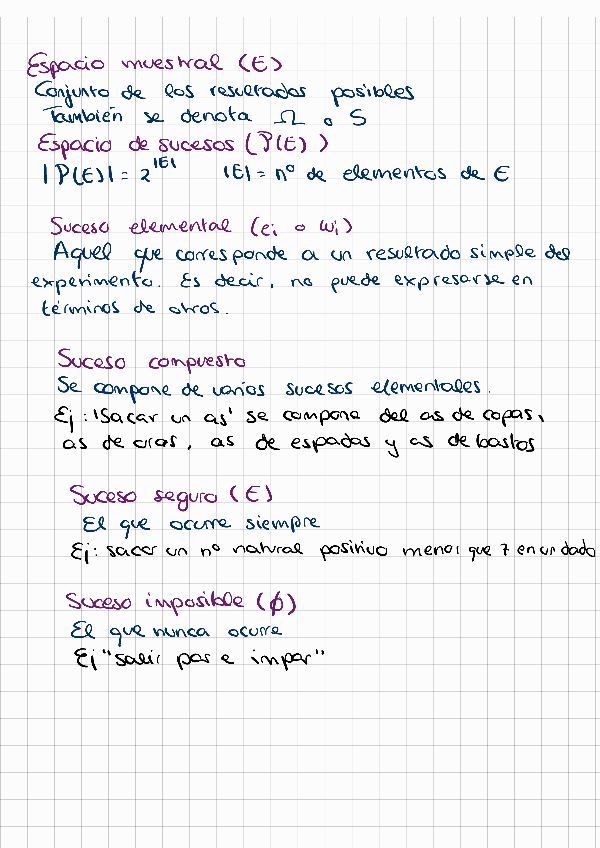 Espacio muestral (E)
Conjunto de los resultados posibles
También se denota Ω o S
Espacio de sucesos (P(E))
|P(E)| = 2^|E| |E| = nº de elementos de E
Suceso elemental (ei o ωi)
Aquel que corresponde a un resultado simple del
experimento. Es decir, no puede expresarse en
términos de otros.
Suceso compuesto
Se compone de varios sucesos elementales.
Ej: 'Sacar un as' se compone del as de copas,
as de oros, as de espadas y as de bastos
Suceso seguro (E)
El que ocurre siempre
Ej: sacar un nº natural positivo menor que 7 en un dado
Suceso imposible (ϕ)
El que nunca ocurre
Ej "salir par e impar"